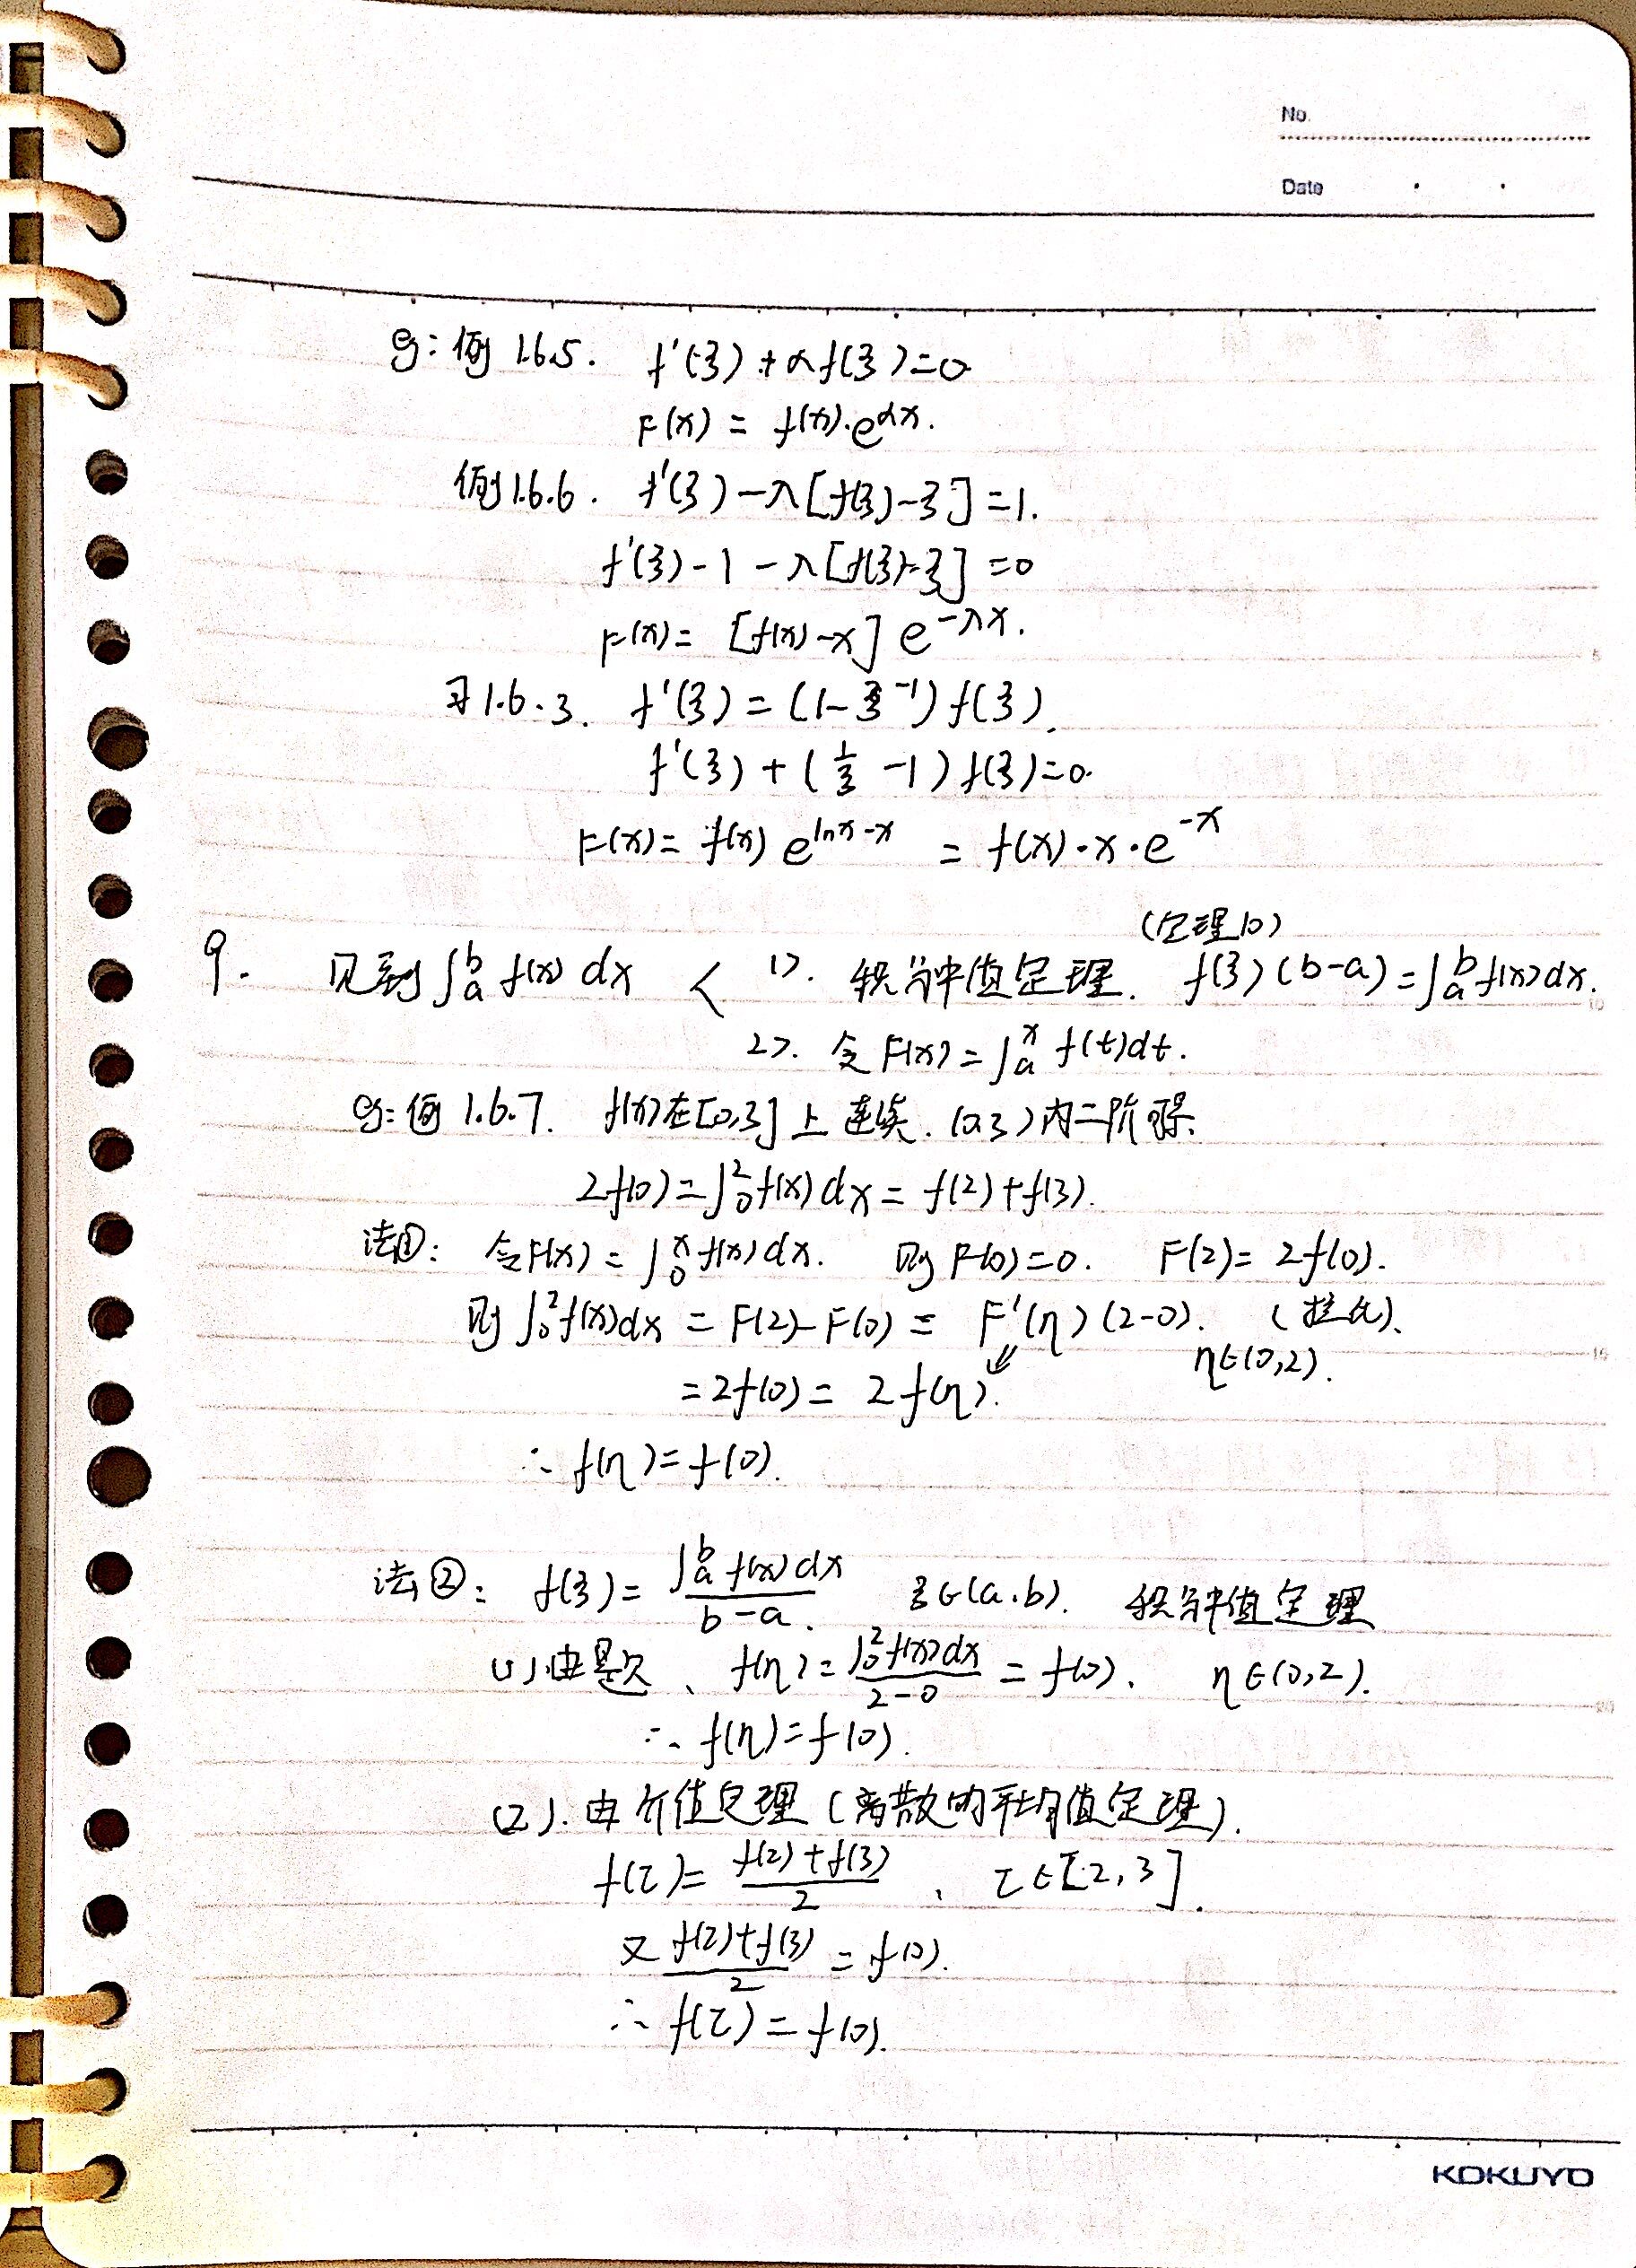 No.
Date
eg: 例1.6.5. f'(ξ)+αf(ξ)=0
F(x) = f(x)·e^{αx}.
例1.6.6. f'(ξ)-λ[f(ξ)-ξ]=1.
f'(ξ)-1-λ[f(ξ)-ξ]=0
F(x)= [f(x)-x] e^{-λx}.
习1.6.3. f'(ξ)=(1-ξ^{-1})f(ξ).
f'(ξ)+(\frac{1}{ξ}-1)f(ξ)=0.
F(x)= f(x) e^{lnx-x} = f(x)·x·e^{-x}
(定理10)
9. 见到∫_a^b f(x) dx < 1>. 积分中值定理. f(ξ)(b-a)=∫_a^b f(x)dx.
2>. 令F(x)=∫_a^x f(t)dt.
eg: 例1.6.7. f(x)在[0,3]上连续. (0,3)内二阶可导.
2f(0)=∫_0^2 f(x)dx=f(2)+f(3).
法①: 令F(x)=∫_0^x f(x)dx. 则F(0)=0. F(2)=2f(0).
则∫_0^2 f(x)dx = F(2)-F(0) = F'(η)(2-0). (拉氏).
η∈(0,2).
=2f(0)= 2f(η).
∴ f(η)=f(0).
法②: f(ξ)=\frac{∫_a^b f(x)dx}{b-a}. ξ∈(a,b). 积分中值定理
(1)由题、f(η)=\frac{∫_0^2 f(x)dx}{2-0}=f(0). η∈(0,2).
∴ f(η)=f(0).
(2).由介值定理(离散的平均值定理).
f(τ)=\frac{f(2)+f(3)}{2}、τ∈[2,3].
又\frac{f(2)+f(3)}{2}=f(0).
∴ f(τ)=f(0).
KOKUYO